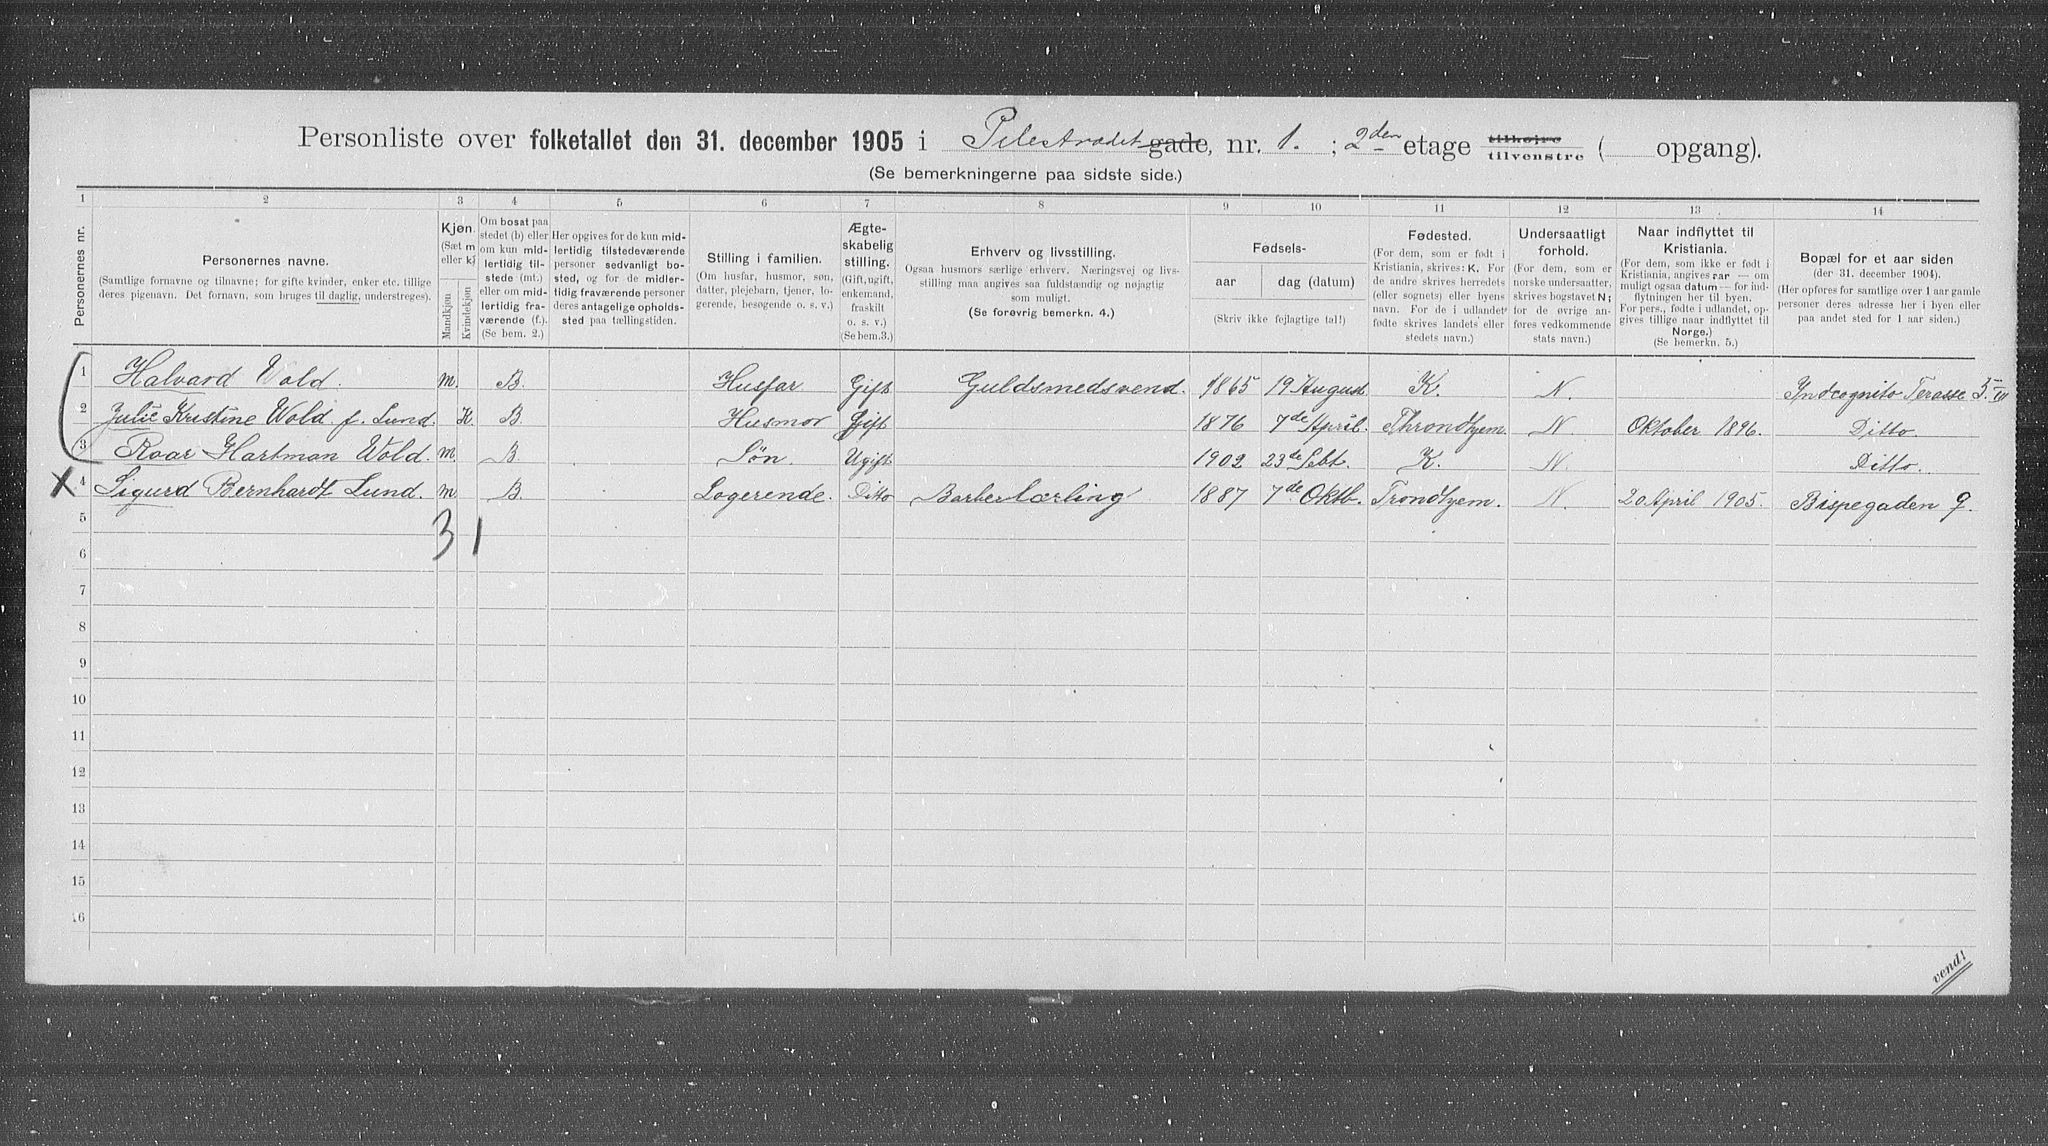 Personliste over folketallet den 31. december 1905 i Pilestrædet gade, nr. 1. ; 2den etage tilhøjre tilvenstre ( opgang).
(Se bemerkningerne paa sidste side.)
1 2 3 4 5 6 7 8 9 10 11 12 13 14
Personernes nr.
Personernes navne.
(Samtlige fornavne og tilnavne; for gifte kvinder, enker etc. tillige
deres pigenavn. Det fornavn, som bruges til daglig, understreges).
Kjøn.
(Sæt m
eller k)
Mandkjøn
Kvindekjøn
Om bosat paa
stedet (b) eller
om kun midlertidig
tilstede (mt.)
eller om midlertidig
fraværende (f.).
(Se bem. 2.)
Her opgives for de kun midlertidig
tilstedeværende
personer sedvanlig bosted,
og for de midlertidig
fraværende personer
deres antagelige opholdssted
paa tællingstiden.
Stilling i familien.
(Om husfar, husmor, søn,
datter, plejebarn, tjener, logerende,
besøgende o. s. v.)
Ægteskabelig
stilling.
(Gift, ugift,
enkemand,
fraskilt
o. s. v.)
(Se bem. 3.)
Erhverv og livsstilling.
Ogsaa husmors særlige erhverv. Næringsvej og livsstilling
maa angives saa fuldstændig og nøjagtig
som muligt.
(Se forøvrig bemerkn. 4.)
Fødsels-
aar dag (datum)
(Skriv ikke fejlagtige tal!)
Fødested.
(For dem, som er født i
Kristiania, skrives: K. For
de andre skrives herredets
(eller sognets) eller byens
navn. For de i udlandet
fødte skrives landets eller
stedets navn.)
Undersaatlig
forhold.
(For dem, som er
norske undersaatter,
skrives bogstavet N;
for de øvrige anføres
vedkommende
stats navn.)
Naar indflyttet til
Kristiania.
(For dem, som ikke er født i
Kristiania, angives aar — om
muligt ogsaa datum — for indflytningen
her til byen.
For pers., fødte i udlandet, opgives
tillige naar indflyttet til
Norge.)
(Se bemerkn. 5.)
Bopæl for et aar siden
(der 31. december 1904).
(Her opføres for samtlige over 1 aar gamle
personer deres adresse her i byen eller
paa andet sted for 1 aar siden.)
1 Halvard Wold. m. B. Husfar Gift Guldsmedsvend. 1865 19 August K. N. Indcognito Terasse 5. III
2 Julie Kristine Wold. f. Lund. K. B. Husmor Gift 1876 7de April. Throndhjem N Oktober 1896. Ditto.
3 Roar Hartman Wold. m. B. Søn. Ugift 1902 23de Sebt. K. N. Ditto.
X 4 Sigurd Bernhardt Lund. m B. Logerende. Ditto Barberlærling 1887 7de Oktb. Trondhjem. N. 20 April 1905. Bispegaden 9.
5
3 1
6
7
8
9
10
11
12
13
14
15
16
vend!